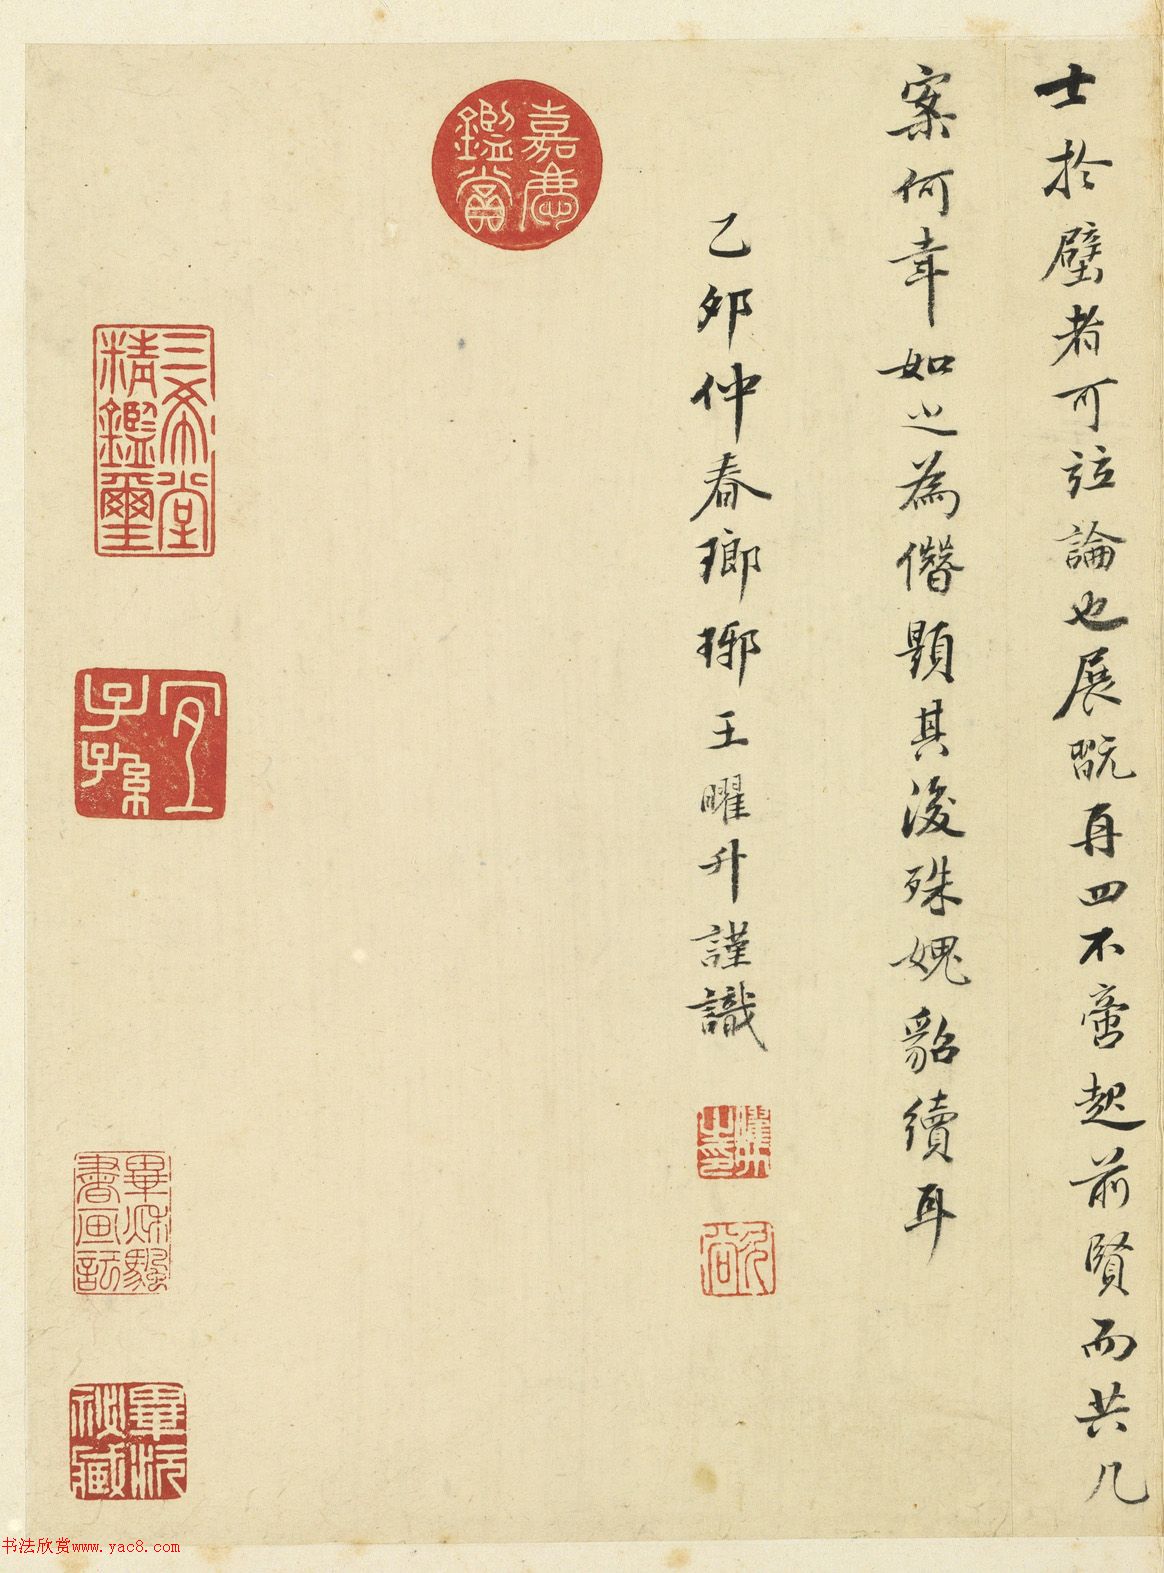 士於壁者可竝論也展翫再四不啻起前賢而共几
案何幸如之為僭題其後殊媿貂續耳
乙卯仲春瑯琊王曜升謹識
嘉慶鑑賞
三希堂精鑑璽
宜子孫
畢沅秘藏
书法欣赏www.yac8.com